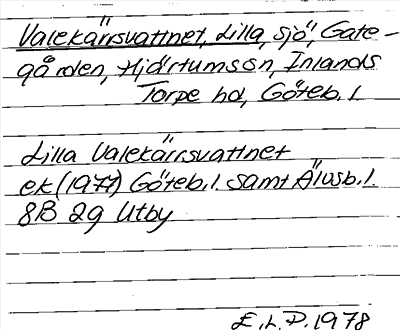 Valekärrsvattnet, Lilla, sjö, Gate-
gården, Hjärtumssn, Inlands
Torpe hd, Göteb. l.
Lilla Valekärrsvattnet
ek (1977) Göteb. l. samt Älvsb. l.
8B 2g Utby
E. L. P. 1978